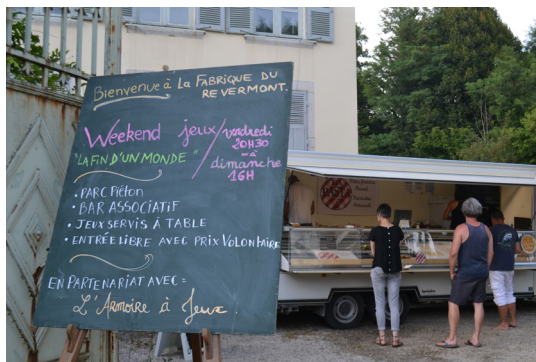 Bienvenue à LA FABRIQUE DU
REVERMONT.
Weekend jeux / vendredi
20H30
"LA FIN D'UN MONDE" -à-
dimanche
16H
• PARC Piéton
• BAR ASSOCIATIF
• JEUX SERVIS À TABLE
• ENTRÉE LIBRE AVEC PRIX VOLONTAIRE
EN PARTENARIAT AVEC =
L'Armoire à Jeux.
PIZZA